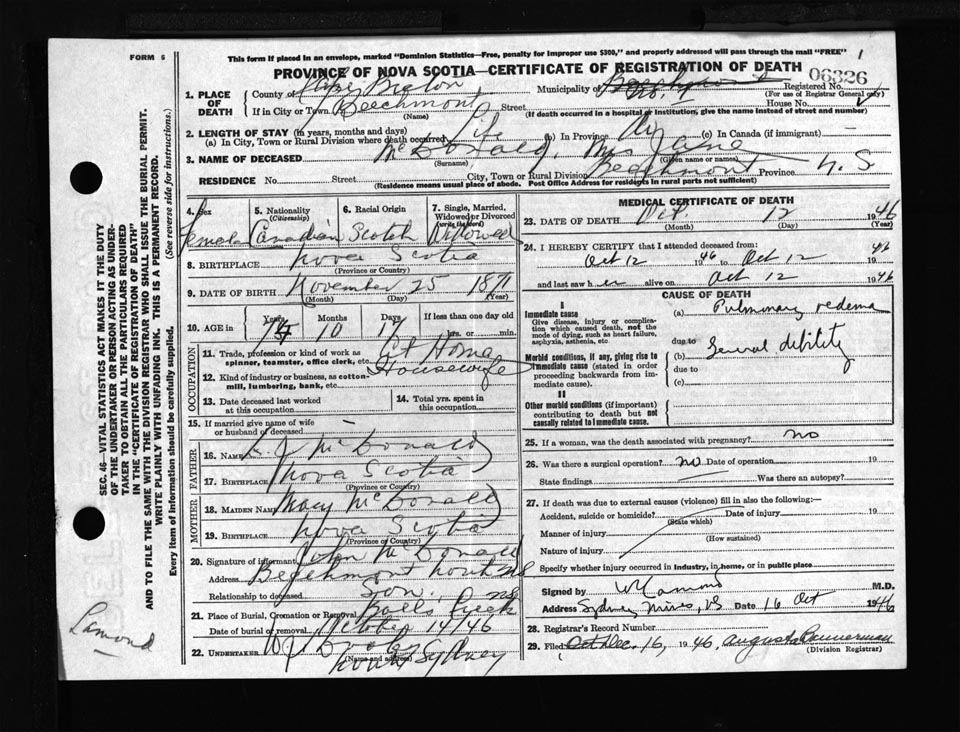 FORM 6
This form if placed in an envelope, marked "Dominion Statistics—Free, penalty for improper use $300," and properly addressed will pass through the mail "FREE"
1
PROVINCE OF NOVA SCOTIA—CERTIFICATE OF REGISTRATION OF DEATH
06326
1. PLACE OF DEATH
County of Cape Breton Municipality of Registered No.
(For use of Registrar General only)
If in City or Town Beechmont Street House No.
(Name) (If death occurred in a hospital or institution, give the name instead of street and number)
2. LENGTH OF STAY (in years, months and days)
(a) In City, Town or Rural Division where death occurred Life (b) In Province (c) In Canada (if immigrant)
3. NAME OF DECEASED McDonald, Mrs Jane
(Surname) (Given name or names)
RESIDENCE No. Street City, Town or Rural Division Beechmont Province N.S
(Residence means usual place of abode. Post Office Address for residents in rural parts not sufficient)
4. Sex Female
5. Nationality (Citizenship) Canadian
6. Racial Origin Scotch
7. Single, Married, Widowed or Divorced (write the word) Widowed
8. BIRTHPLACE Nova Scotia
(Province or Country)
9. DATE OF BIRTH November 25 1871
(Month) (Day) (Year)
10. AGE in Years Months Days If less than one day old
10 17 hrs. or min.
OCCUPATION
11. Trade, profession or kind of work as spinner, teamster, office clerk, etc. At Home
12. Kind of industry or business, as cotton-mill, lumbering, bank, etc. Housewife
13. Date deceased last worked at this occupation
14. Total yrs. spent in this occupation
15. If married give name of wife or husband of deceased
FATHER
16. NAME McDonald
17. BIRTHPLACE Nova Scotia
(Province or Country)
MOTHER
18. MAIDEN NAME Mary McDonald
19. BIRTHPLACE Nova Scotia
(Province or Country)
20. Signature of informant John McDonald
Address Beechmont
Relationship to deceased son
21. Place of Burial, Cremation or Removal Balls Creek
Date of burial or removal October 14/46
22. UNDERTAKER
(Name and address) North Sydney
MEDICAL CERTIFICATE OF DEATH
23. DATE OF DEATH Oct. 12 1946
(Month) (Day) (Year)
24. I HEREBY CERTIFY that I attended deceased from:
Oct 12 1946 to Oct 12 46
and last saw her alive on Oct 12 1946
CAUSE OF DEATH
I
Immediate cause
Give disease, injury or complication which caused death, not the mode of dying, such as heart failure, asphyxia, asthenia, etc
(a) Pulmonary oedema
due to
Morbid conditions, if any, giving rise to immediate cause (stated in order proceeding backwards from immediate cause).
(b) General debility
due to
(c)
II
Other morbid conditions (if important) contributing to death but not causally related to immediate cause.
25. If a woman, was the death associated with pregnancy? no
26. Was there a surgical operation? no Date of operation 19
State findings Was there an autopsy?
27. If death was due to external causes (violence) fill in also the following:—
Accident, suicide or homicide? Date of injury 19
(State which)
Manner of injury
(How sustained)
Nature of injury
Specify whether injury occurred in industry, in home, or in public place
Signed by M.D.
Address Sydney Mines, NS Date 16 Oct 1946
28. Registrar's Record Number
29. Filed Oct Dec. 16, 1946, Augusta Bannerman
(Division Registrar)
SEC. 46—VITAL STATISTICS ACT MAKES IT THE DUTY
OF THE UNDERTAKER OR PERSON ACTING AS UNDERTAKER TO OBTAIN ALL THE PARTICULARS REQUIRED
IN THE "CERTIFICATE OF REGISTRATION OF DEATH"
AND TO FILE THE SAME WITH THE DIVISION REGISTRAR WHO SHALL ISSUE THE BURIAL PERMIT.
WRITE PLAINLY WITH UNFADING INK. THIS IS A PERMANENT RECORD.
Every item of information should be carefully supplied. (See reverse side for instructions.)
Lamond